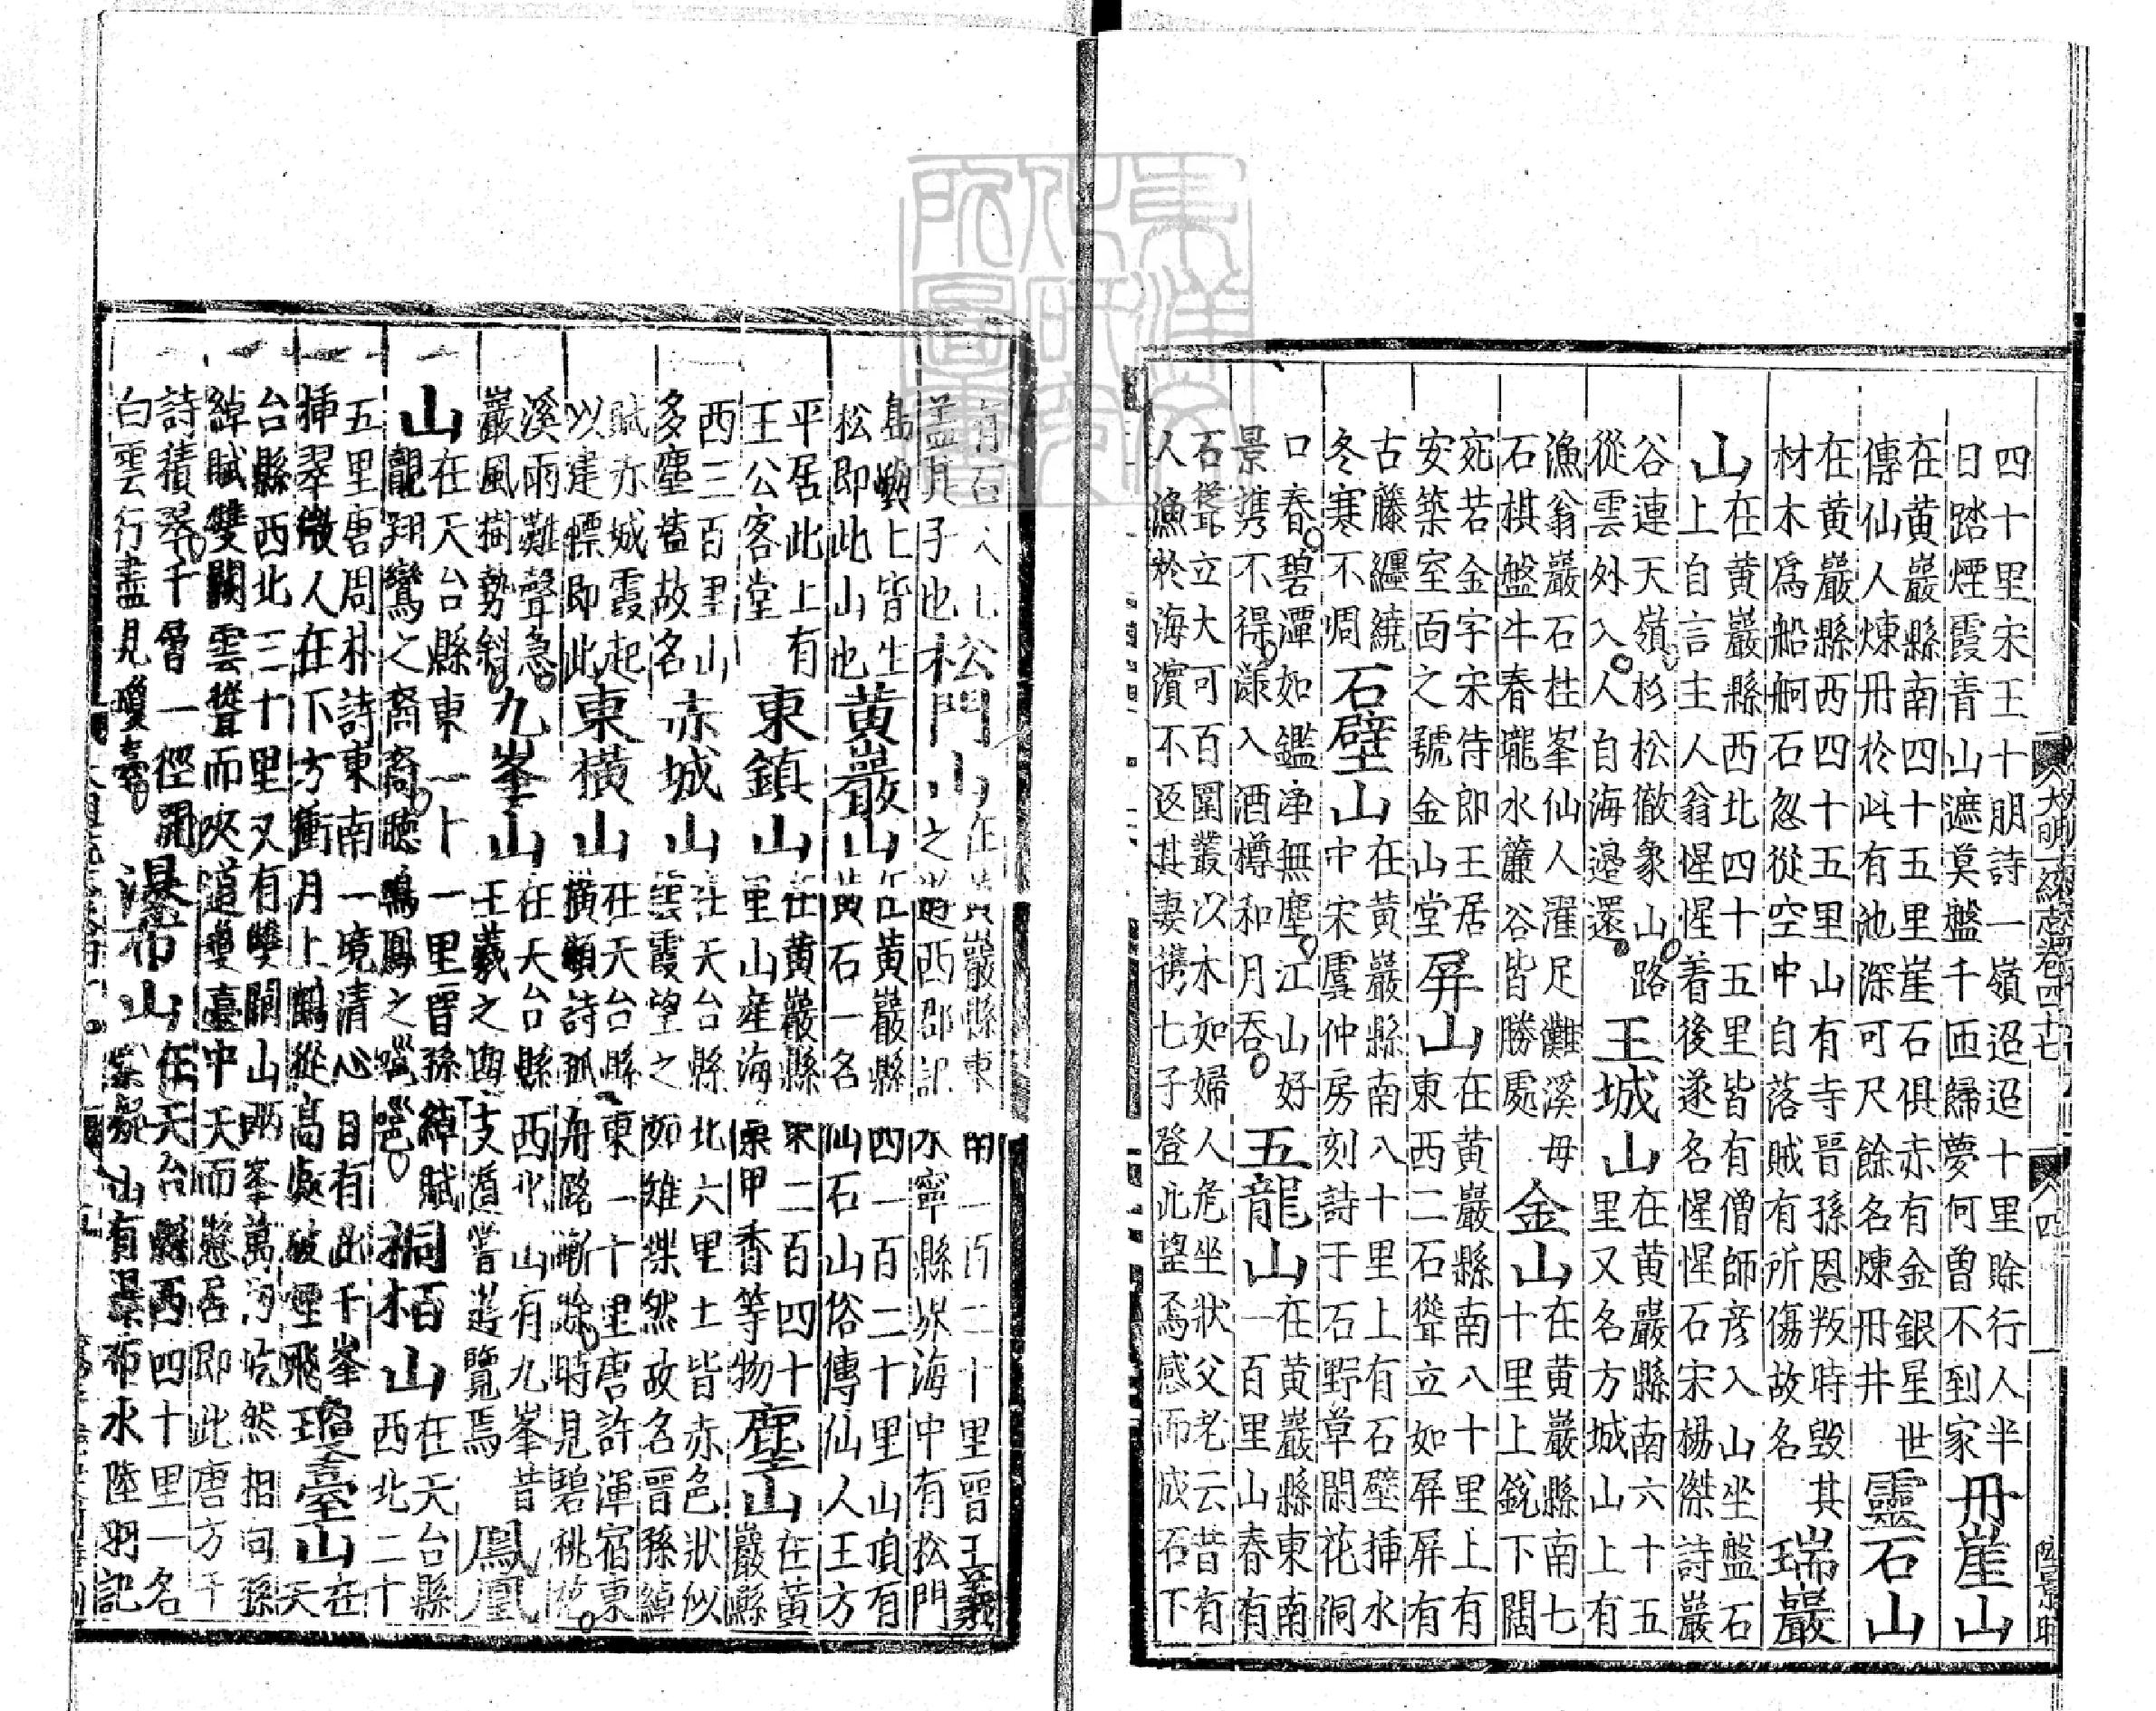 大明一統志卷四十七 四
四十里宋王十朋詩一嶺迢迢十里賒行人半
日踏煙霞青山遮莫盤千匝歸夢何曾不到家
丹崖山
在黃巖縣南四十五里崖石俱赤有金銀星世
傳仙人煉丹於此有池深可尺餘名煉丹井
靈石山
在黃巖縣西四十五里山有寺晉孫恩叛時毀其
材木爲船舸石忽從空中自落賊有所傷故名
瑞巖
山
在黃巖縣西北四十五里皆有僧師彦入山坐盤石
上自言主人翁惺惺着後遂名惺惺石宋楊傑詩巖
谷連天嶺杉松徹象山路
從雲外入人自海邉還
王城山
在黃巖縣南六十五
里又名方城山上有
漁翁巖石柱峯仙人濯足灘溪毋
石棋盤牛春瀧水簾谷皆勝處
金山
在黃巖縣南七
十里上銳下闊
宛若金字宋侍郎王居
安築室面之號金山堂
屏山
在黃巖縣南八十里上有
東西二石聳立如屏屏有
古藤纏繞
冬寒不凋
石壁山
在黃巖縣南八十里上有石壁挿水
中宋虞仲房刻詩于石野草閑花洞
口春碧潭如鑑净無塵江山好
景携不得漾入酒樽和月吞
五龍山
在黃巖縣東南
一百里山春有
石聳立大可百圍叢以木如婦人危坐狀父老云昔有
人漁於海濱不返其妻携七子登此望焉感而成石下
有石人七
蓋其子也
松門山
在黃巖縣東南一百二十里晉王羲
之遊西郡記永寧縣界海中有松門
島嶼上皆生
松即此山也
黃巖山
在黃巖縣四一百二十里山頂有
黃石一名仙石山俗傳仙人王方
平居此上有
王公客堂
東鎮山
在黃巖縣東二百四十
里山産海栗甲香等物
塵山
在黃
巖縣
西三百里山
多塵葢故名
赤城山
在天台縣北六里土皆赤色狀似
雲霞望之如雉堞然故名晉孫綽
賦赤城霞起
以建標即此
東橫山
在天台縣東一十里唐許渾宿東
橫嶺詩孤舟路漸賒時見碧桃花
溪雨灘聲急
巖風樹勢斜
九峯山
在天台縣西北山有九峯昔
王羲之與支遁嘗遊覽焉
鳳凰
山
在天台縣東一十一里晉孫綽賦
覿翔鸞之裔裔聽鳴鳳之嗈嗈
桐栢山
在天台縣
西北二十
五里唐周朴詩東南一境清心目有此千峯
挿翠微人在下方衝月上鶴從高處破煙飛
瓊臺山
在
天
台縣西北三十里又有雙闕山兩峯萬仞屹然相向孫
綽賦雙闕雲聳而夾道瓊臺中天而懸居即此唐方干
詩積翠千層一徑開
白雲行盡見瓊臺
瀑布山
在天台縣西四十里一名
紫凝山有瀑布水陸羽記